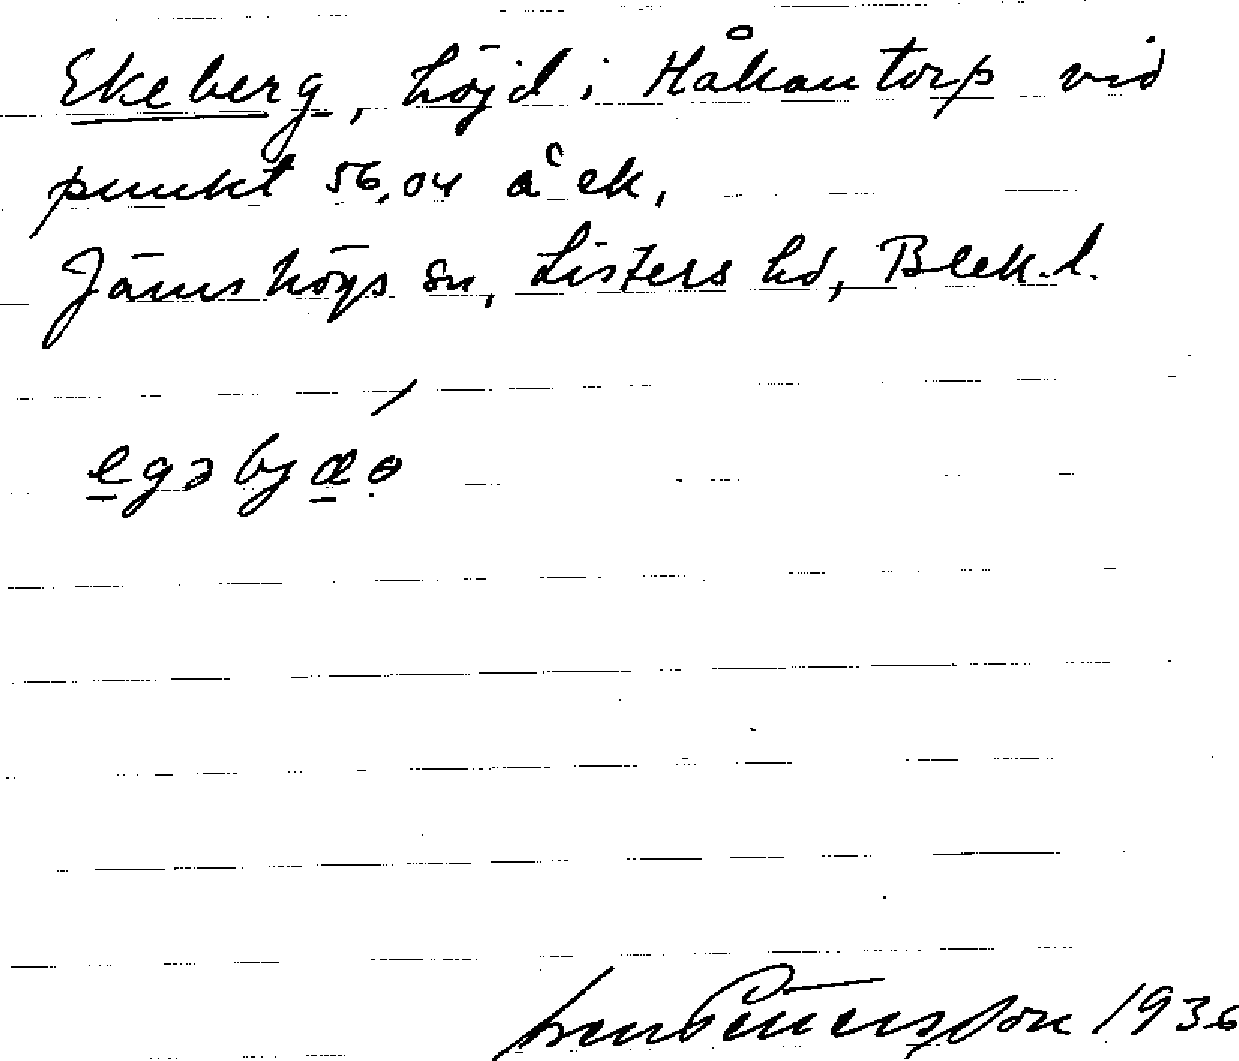 Ekeberg, höjd i Håkantorp vid
punkt 56,04 å ek,
Jämshögs sn, Listers hd, Blek. l.
egəbjæ
1936